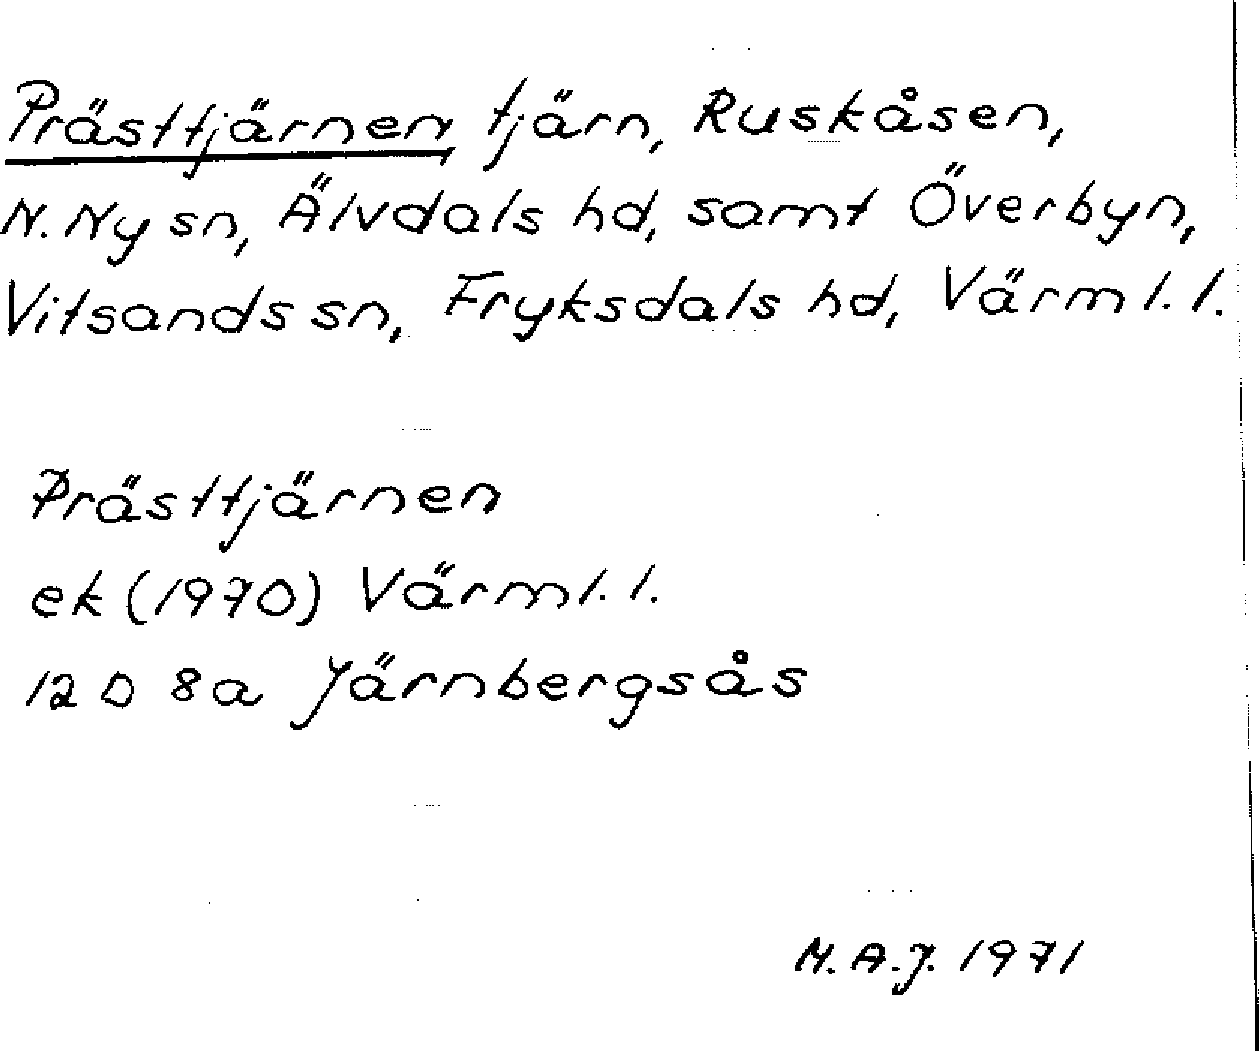 Prästtjärnen, tjärn, Ruskåsen,
N. Ny sn, Älvdals hd, samt Överbyn,
Vitsands sn, Fryksdals hd, Värml. l.
Prästtjärnen
ek (1970) Värml. l.
12 D 8a Järnbergsås
M. A. J. 1971